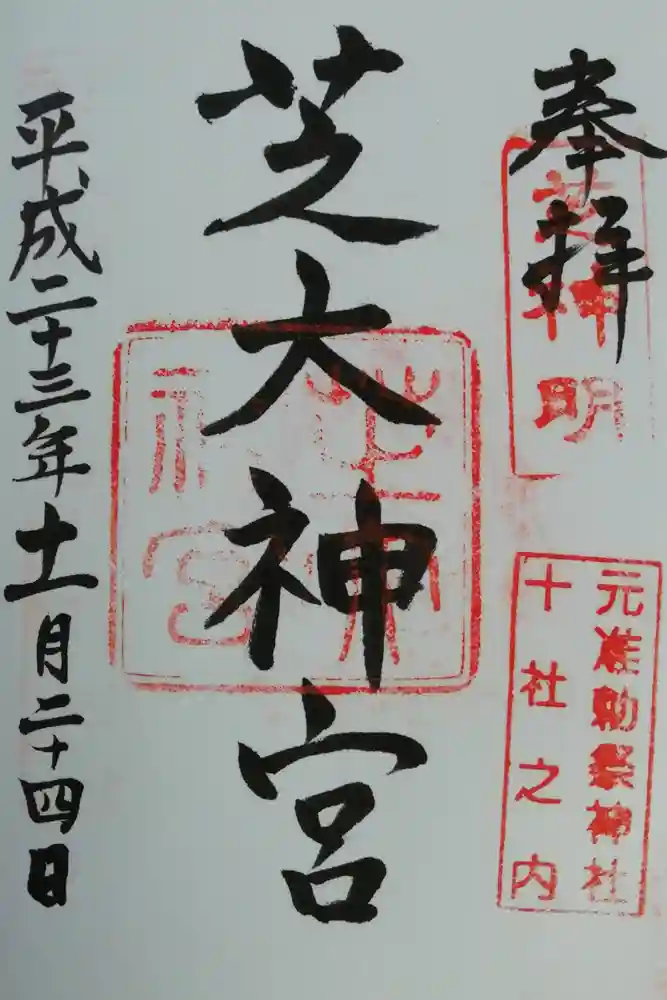 奉拝
芝神明
元准勅祭神社
十社之内
芝大神宮
芝大
神宮
平成二十三年十一月二十四日